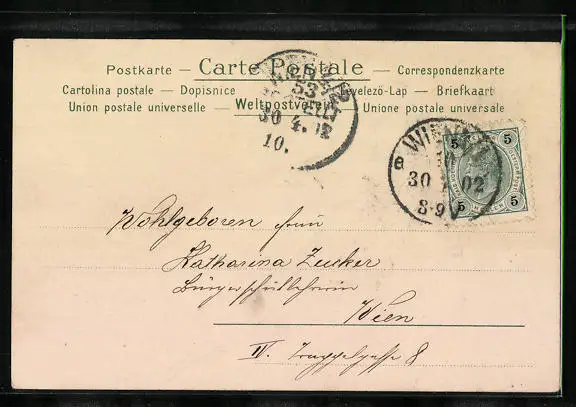 Postkarte — Carte Postale — Correspondenzkarte
Cartolina postale — Dopisnice Levelező-Lap — Briefkaart
Union postale universelle — Weltpostverein — Unione postale universale
53
30 4. 02
10.
WIEN
30 02
8-9V
5 5
5 5
Wohlgeboren Frau
Katharina Zucker
Bürgerschullehrerin
Wien
IV. 8